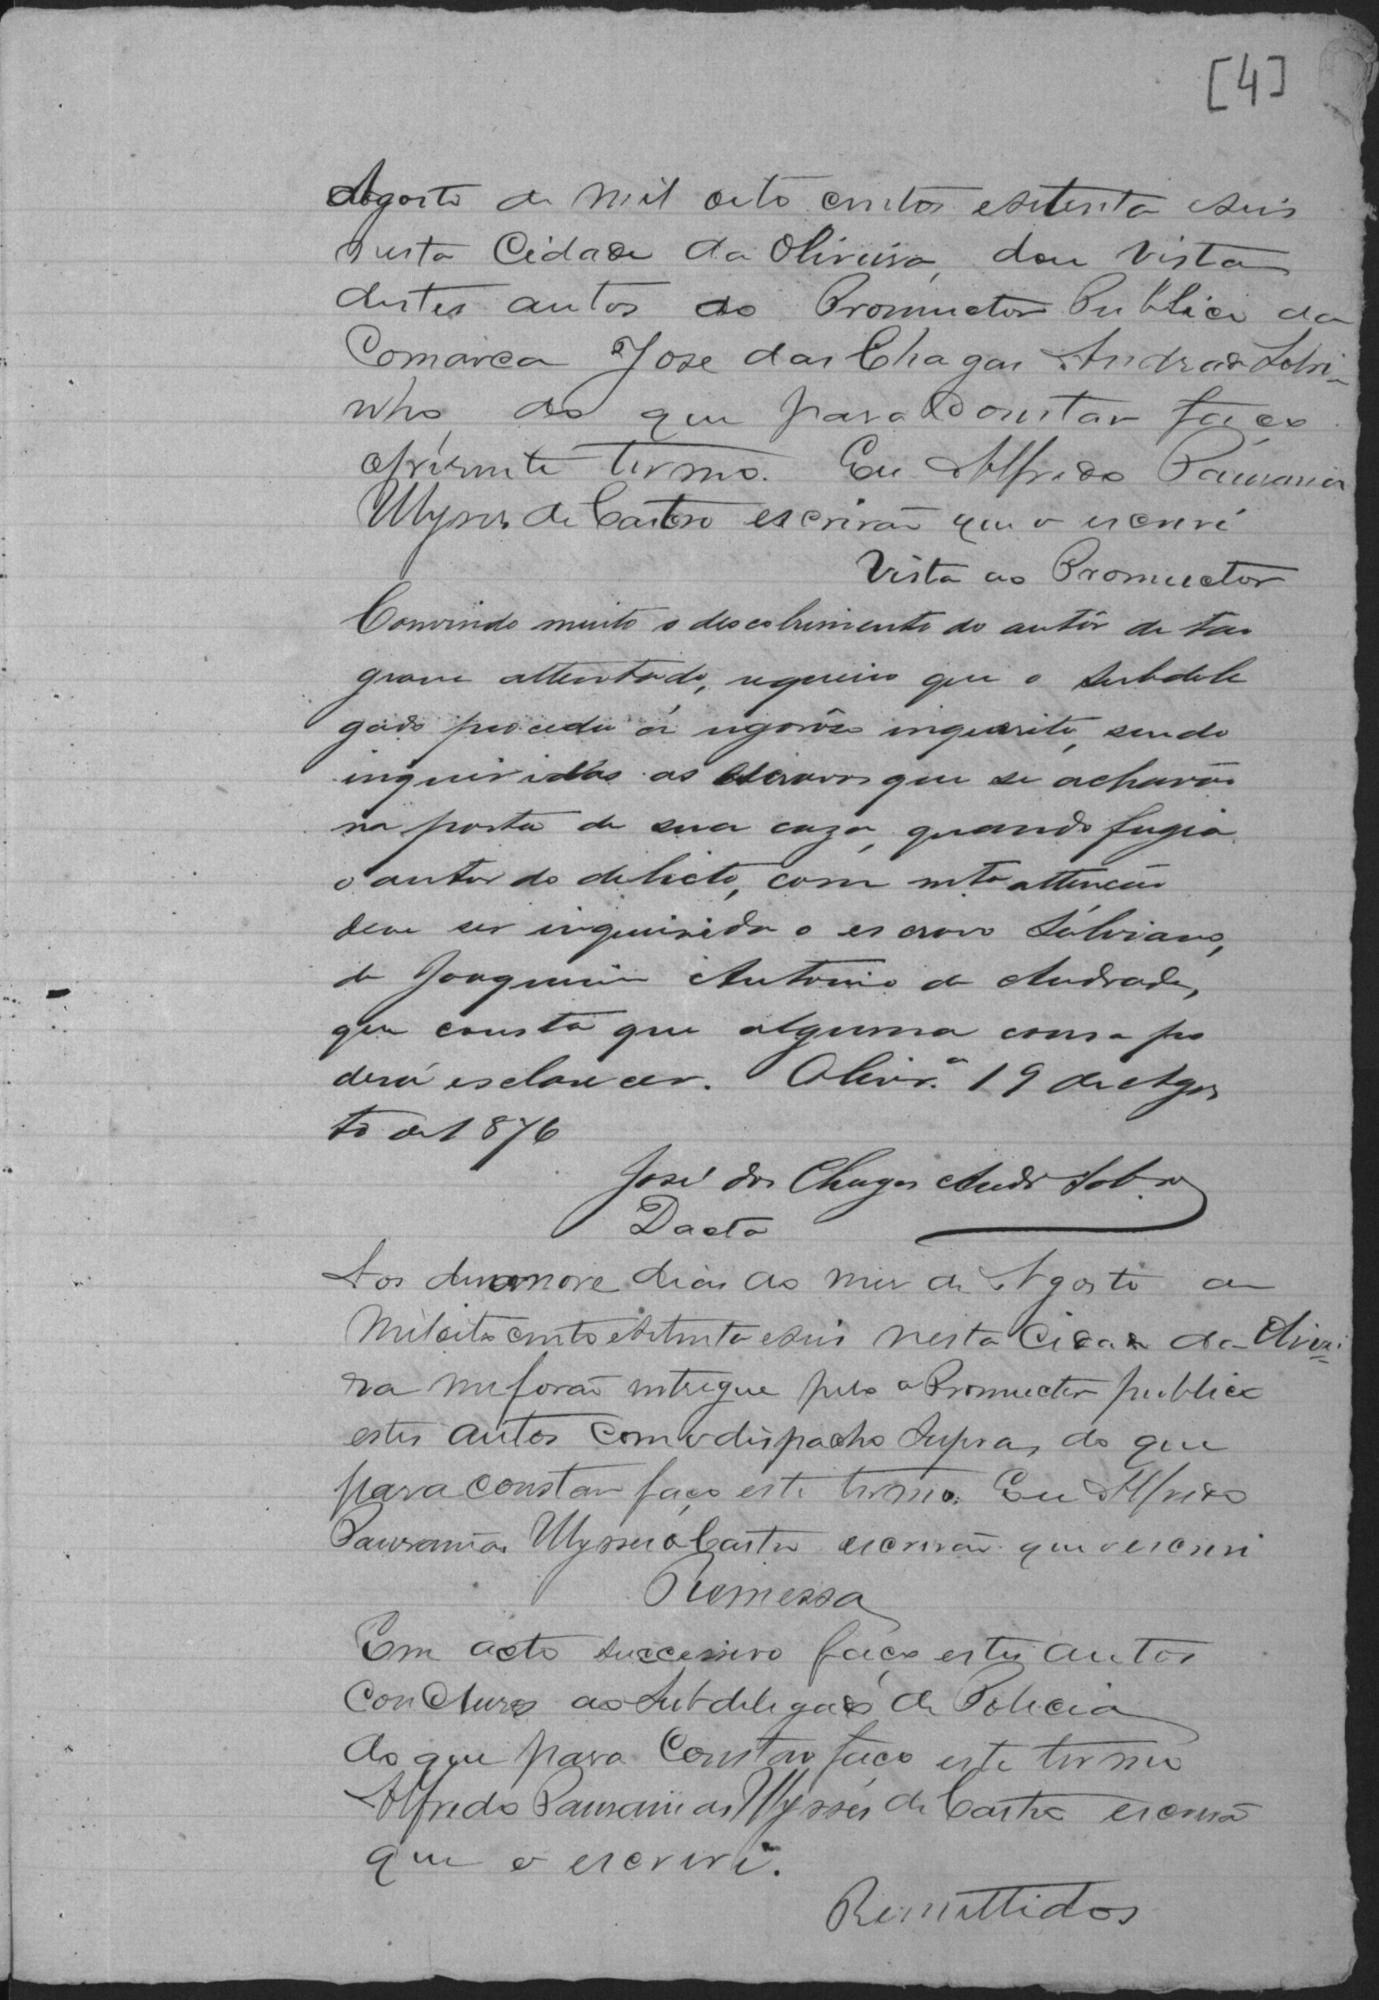 [4]
Agosto de mil oito centos esetenta eseis
nesta Cidade da Oliveira, dou vista
destes autos ao Promuctor Publico da
Comarca Jose das Chagas Andrade Sobri-
nho, do que para Constar faço
opresente termo. Eu Alfredo Pausanias
Ulysses de Castro escrivão que o escrevi
Vista ao Promuctor
Convindo muito o descobrimento do autôr de tão
grave attentado, requeiro que o subdele
gado proceda á rigorôso inquerito, sendo
inquiridos os escravos que se acharão
na porta de sua caza, quando fugia
o autor do delicto, com mta attenção
deve ser inquirido o escravo Silviano,
de Joaquim Antonio de Andrade,
que consta que alguma cousa po
derá esclarecer. Olivr.a 19 de Agos
to de 1876
José das Chagas Andr Sobro
Dacta
Aos desanove dias do mes de Agosto de
mil oito cento esetenta eseis nesta Cidade da Olivei-
ra me forão entregue pelo o Promuctor publico
estes autos com o dispacho supra, do que
para constar faço este termo. Eu Alfredo
Pausanias Ulysses de Castro escrivão que o escrevi
Remessa
Em acto successivo faço estes autos
Concluzos ao Subdelegado de Policia
do que para Constar faço este termo
Alfredo Pausanias Ulysses de Castro escrivão
que o escrevi.
Remettidos